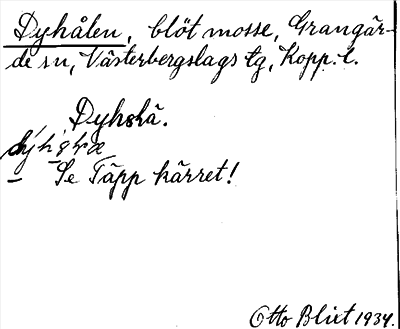 Dyhålen, blöt mosse, Grangär-
de sn, Västerbergslags tg, Kopp. l.
Dyhskä.
– Se Täpp kärret!
Otto Blixt 1934.